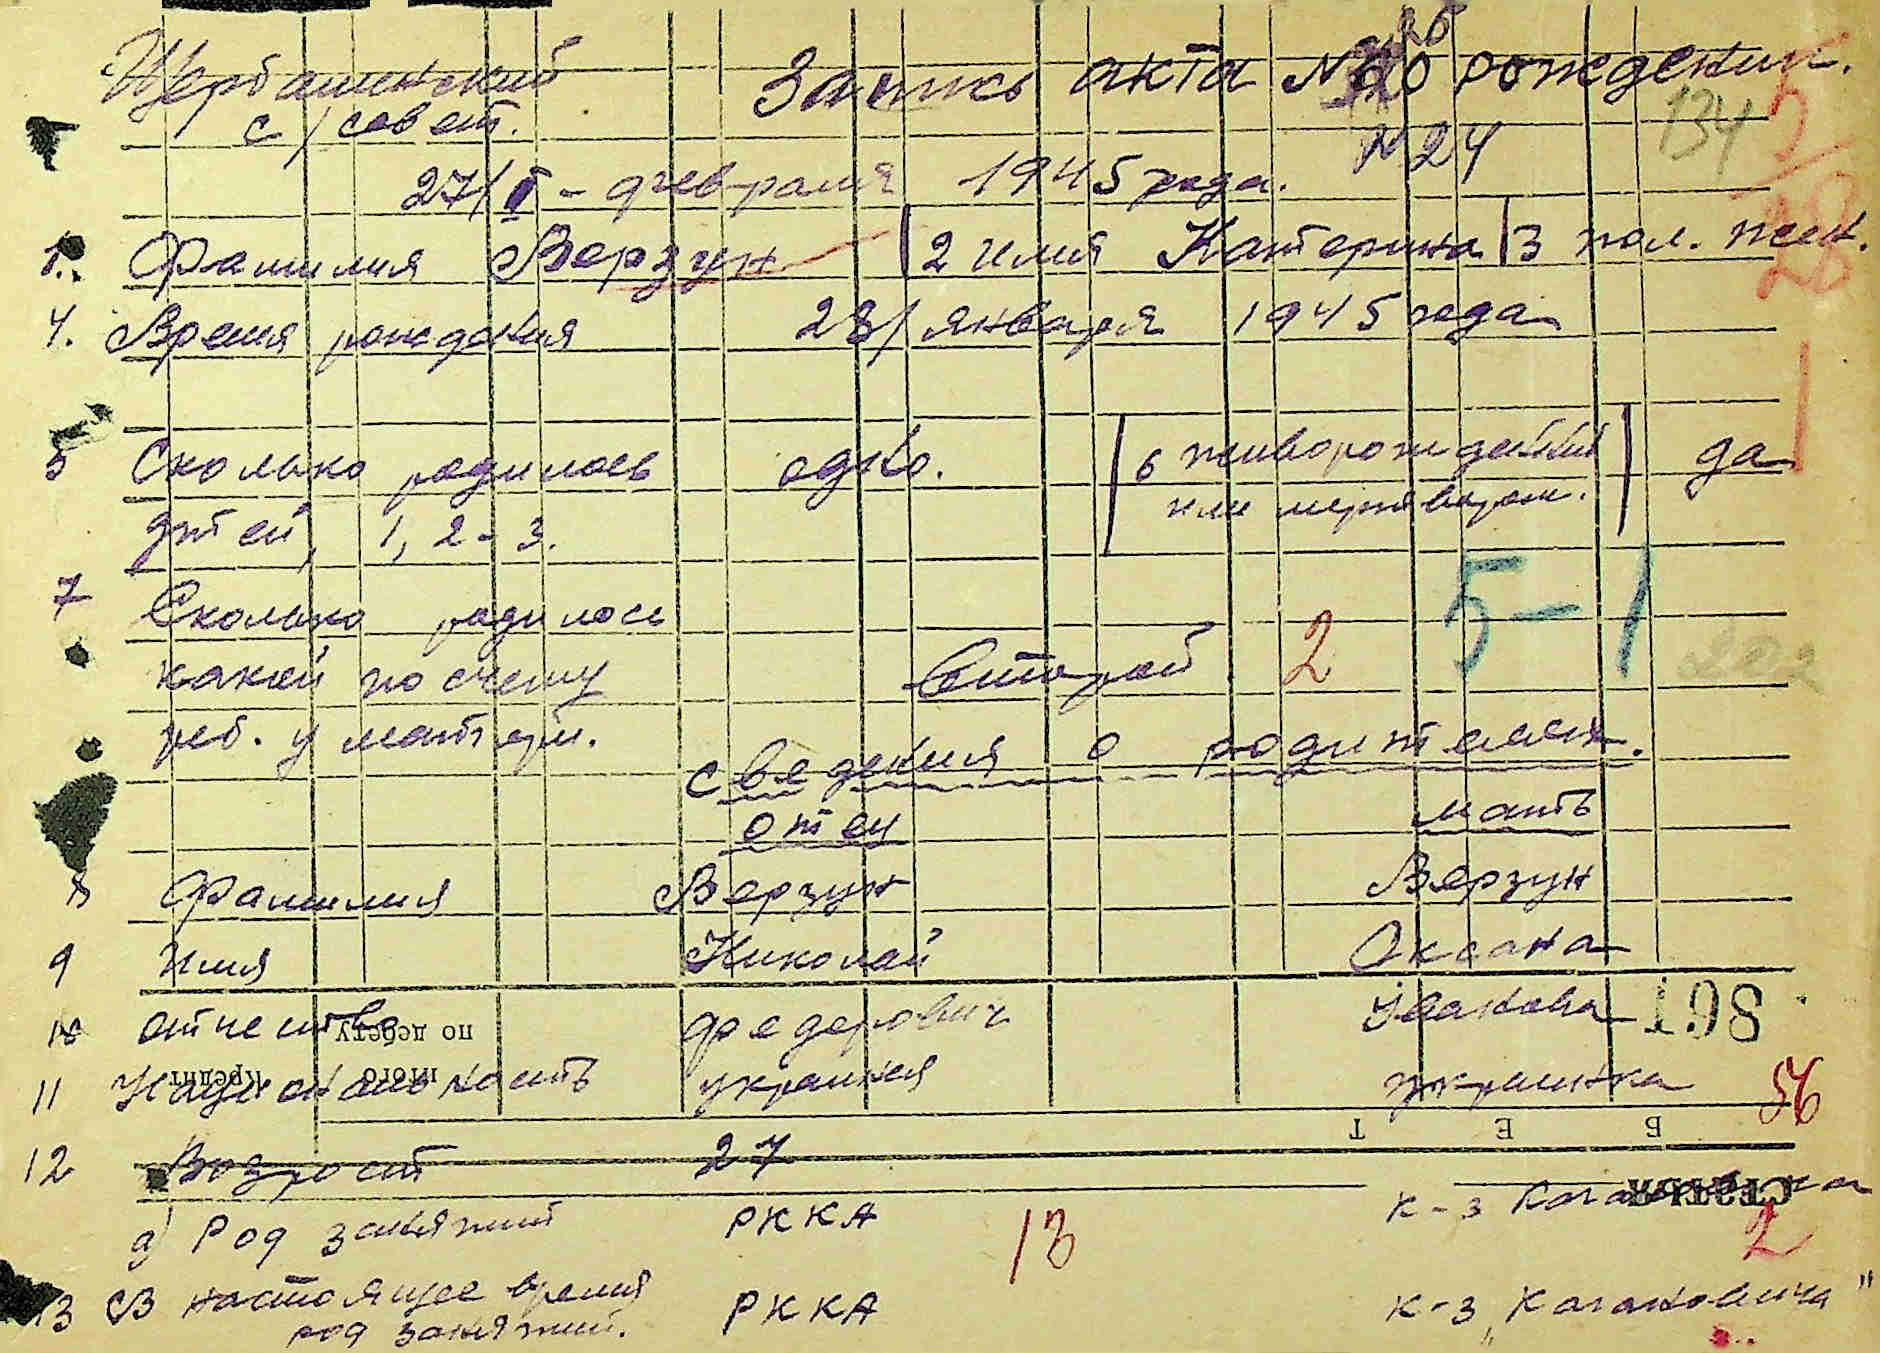 Щербашинский Запись акта № о рождении.
с/совет. 134 5/28
27/II - февраля 1945 года. № 24
1. Фамилия Верзун 2 имя Катерина 3 пол. жен.
4. Время рождения 28/ января 1945 года
5 Сколько родилось одно. 6 живорожденный да
детей, 1, 2-3. или мертворож.
7 Сколько родилось 5-1
какой по счету второй 2 202
реб. у матери.
сведения о родителях.
отец мать
8 Фамилия Верзун Верзун
9 Имя Николай Оксана
10 отчество Федерович Ивановна 861
по дебету
11 Национальность украинец украинка 56
Итого Кредит
Б Е Т
12 Возрост 27
а) Род занятий РККА 13 к-з Кагановича 2
Статья
13 В настоящее время РККА к-з „Кагановича"
род занятий.